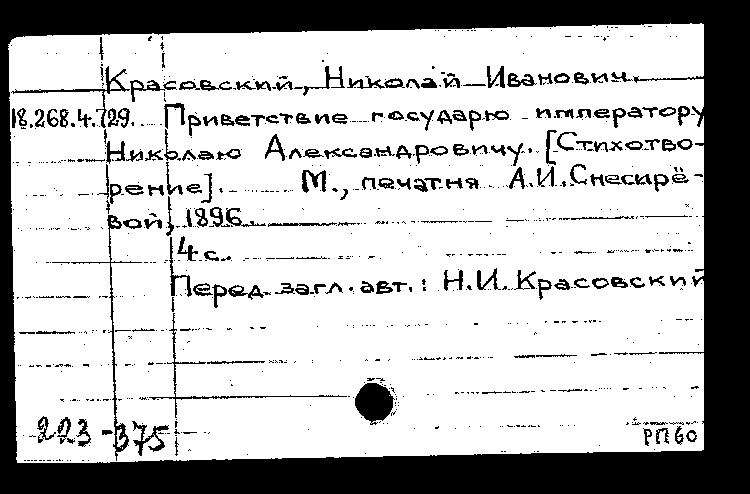 Красовский, Николай Иванович.
18.268.4.729. Приветствие государю императору
Николаю Александровичу. [Стихотво-
рение]. М., печатня А.И.Снегирё-
вой, 1896.
4 с.
Перед загл. авт.: Н.И. Красовский
223-375
РП 60